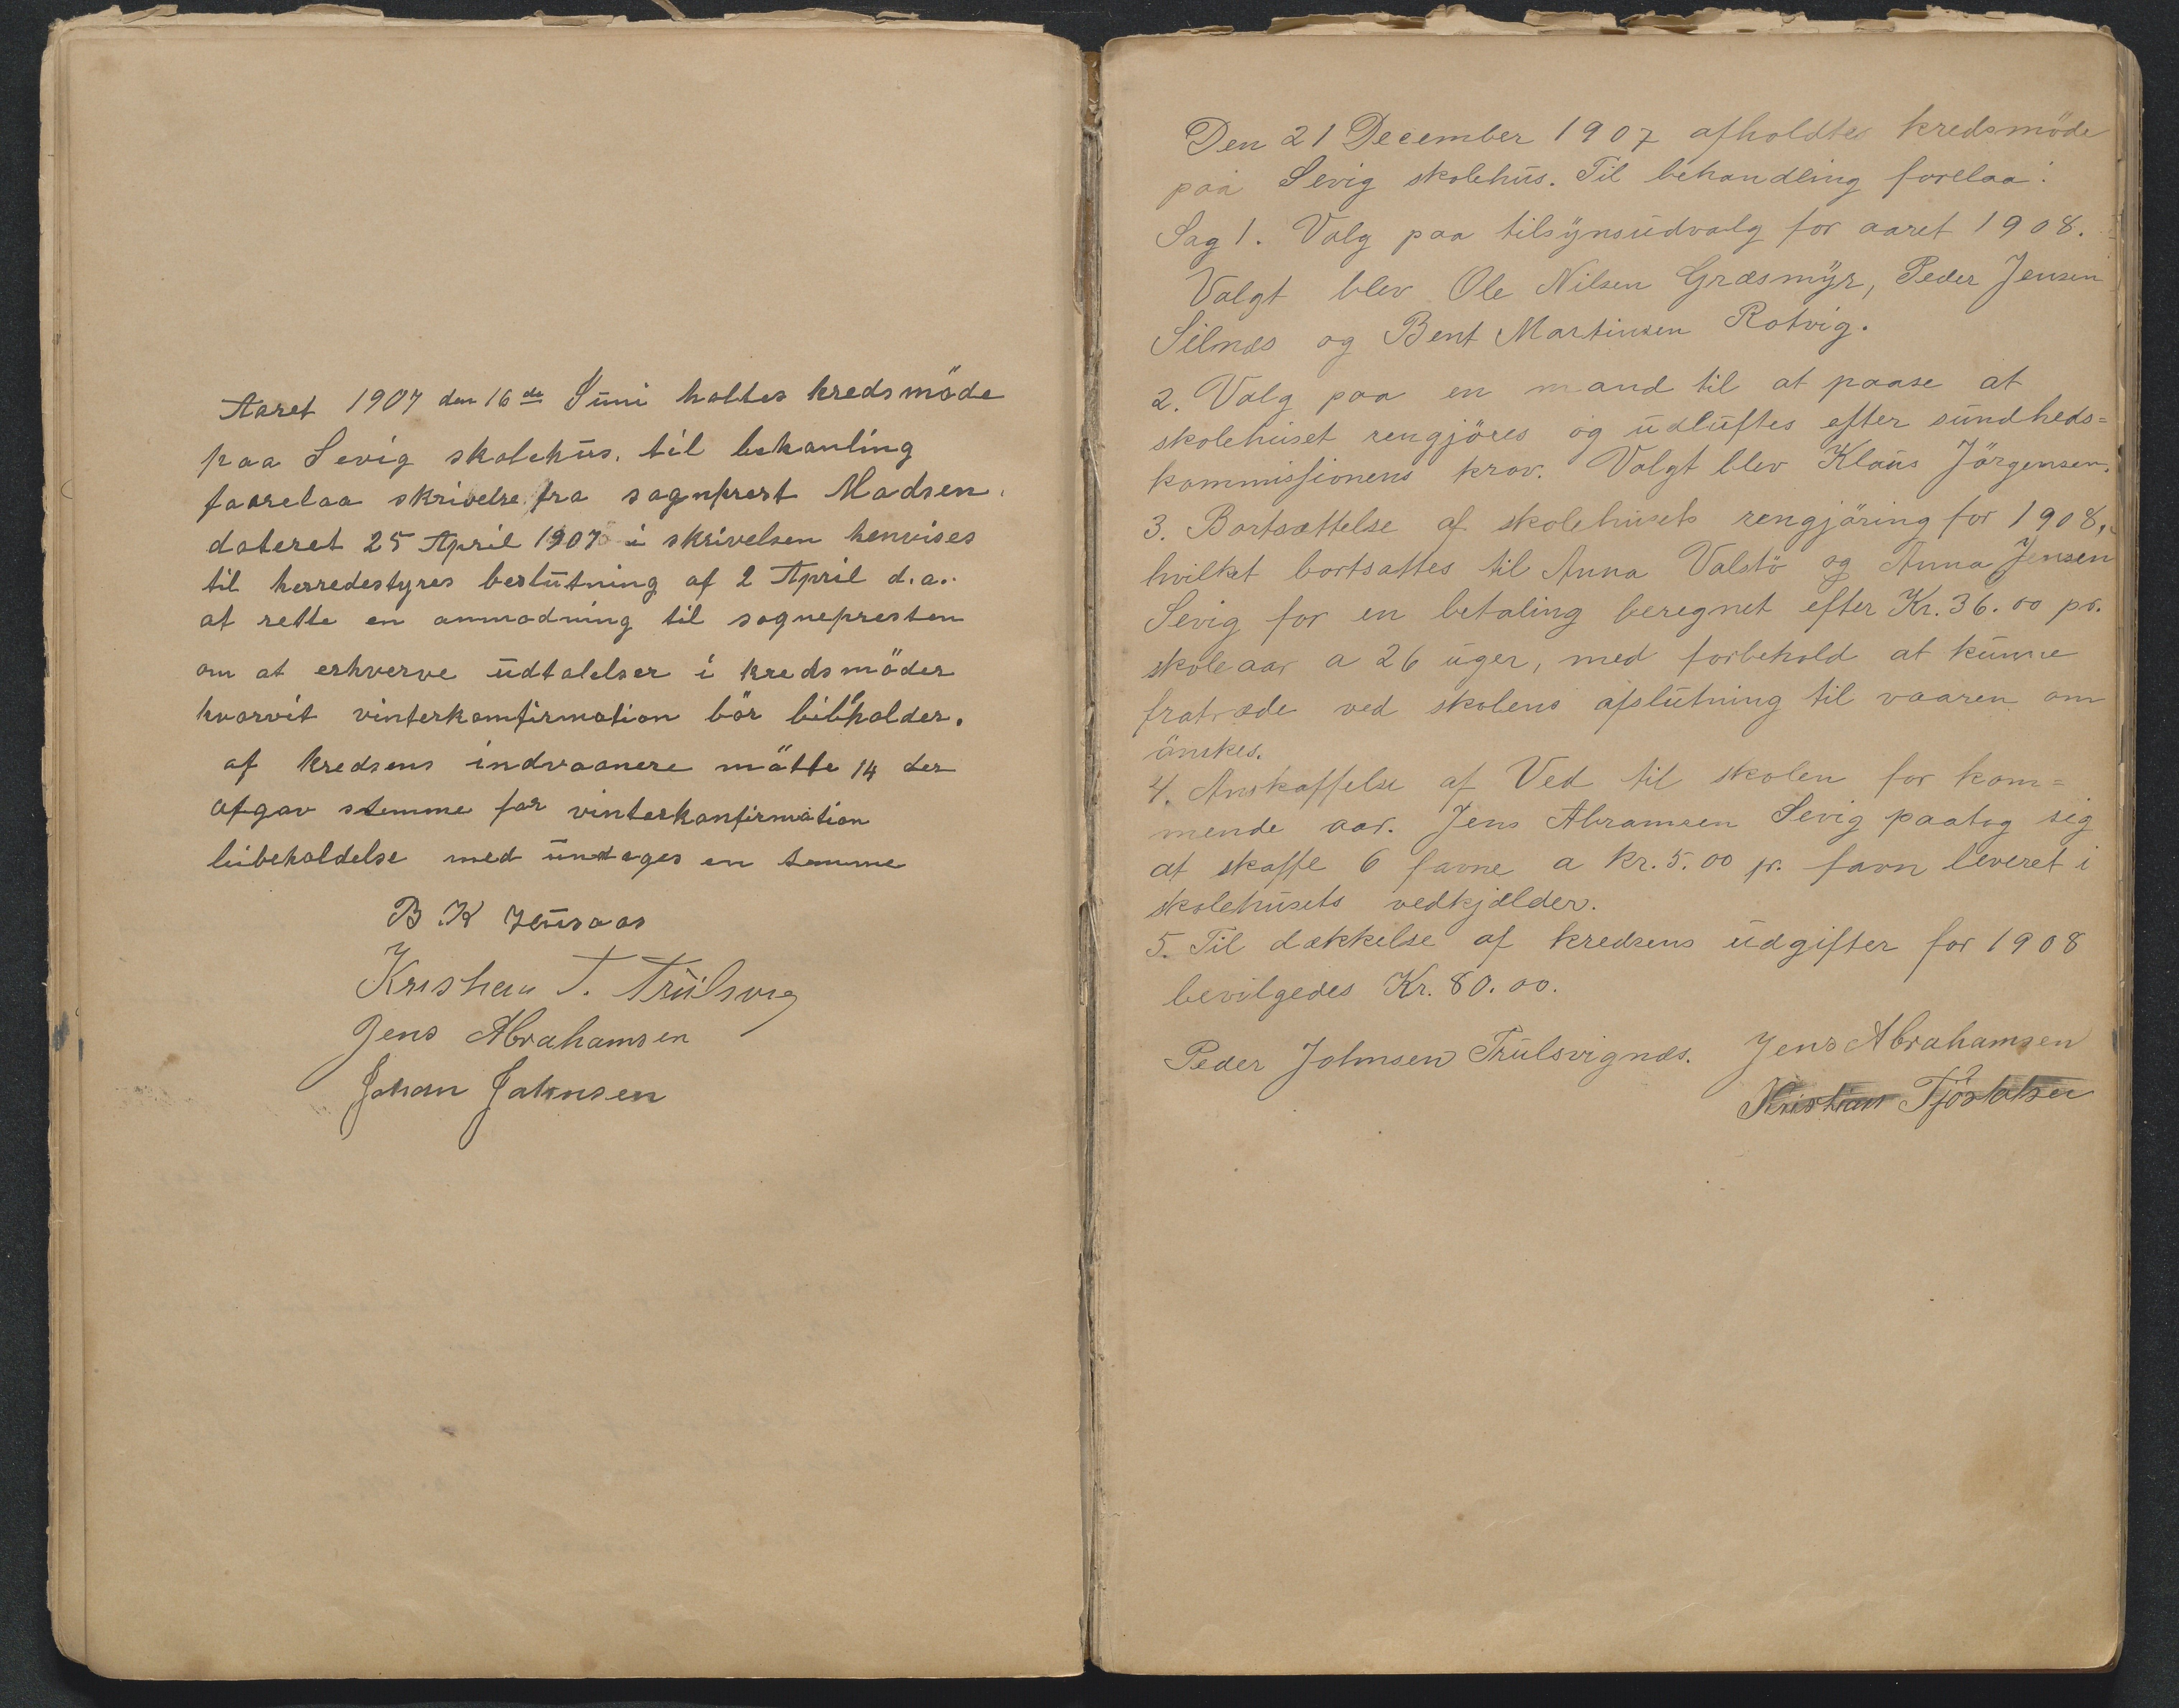 Aaret 1907 den 16de Juni holtes kredsmöde
paa Sevig skolehus. til behanling
faarelaa skrivelse fra sagnprest Madsen.
dateret 25 April 1907 i skrivelsen henvises
til herredestyres beslutning af 2 April d.a..
at rette en anmodning til sognepresten
om at erhverve udtalelser i kredsmöder
hvorvit vinterkomfirmation bör bibholder.
af kredsens indvaanere mötte 14 der
afgav stemme for vinterkonfirmation
beibeholdelse med undtages en temme
B. K
Kristian T. Trulsvig
Jens Abrahamsen
Johan Johnsen
Den 21 December 1907 afholdtes kredsmöde
paa Sevig skolehus. Til behandling forelaa:
Sag 1. Valg paa tilsynsudvalg for aaret 1908.
Valgt blev Ole Nilsen Græsmyr, Peder Jensen
Silnæs og Bent Martinsen Rotvig.
2. Valg paa en mand til at paase at
skolehuset rengjöres og udluftes efter sundheds=
kommissionens krav. Valgt blev Klaus Jörgensen.
3. Bortsættelse af skolehusets rengjöring for 1908,
hvilket bortsattes til Anna Valstö og Anna Jensen
Sevig for en betaling beregnet efter Kr. 36.00 pr.
skoleaar a 26 uger, med forbehold at kunne
fratræde ved skolens afslutning til vaaren om
önskes.
4. Anskaffelse af Ved til skolen for kom=
mende aar. Jens Abramsen Sevig paatog sig
at skaffe 6 favne a kr. 5.00 pr. favn leveret i
skolehusets vedkjælder.
5. Til dækkelse af kredsens udgifter for 1908
bevilgedes Kr. 80.00.
Peder Johnsen Trulsvignæs. Jens Abrahamsen
Kristian Tjöstolsen